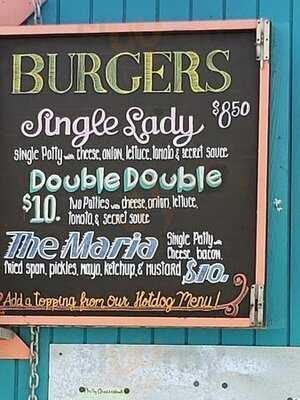 BURGERS
Single Lady $8.50
Single Patty with cheese, onion, lettuce, tomato & secret sauce
Double Double
$10. Two Patties with cheese, onion, lettuce,
tomato, & secret sauce
The Maria Single Patty with
Cheese, bacon,
fried spam, pickles, mayo, ketchup, & mustard $10.
Add a topping from our Hotdog Menu!